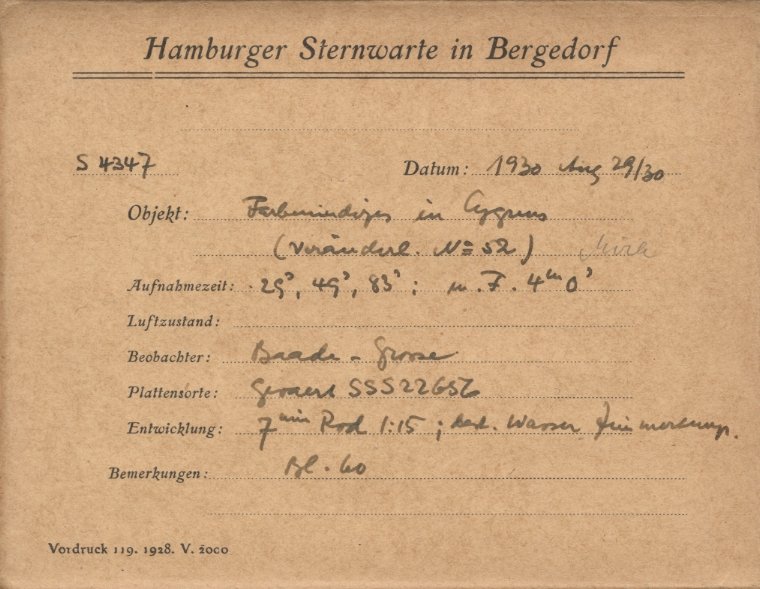 Hamburger Sternwarte in Bergedorf
S 4347 Datum: 1930 Aug 29/30
Objekt: Farbenindizes in Cygnus
(Veränderl. N= 52)
Aufnahmezeit: 29ˢ, 49ˢ, 83ˢ; m. F. 4ᵐ 0ˢ
Luftzustand:
Beobachter: Baade -
Plattensorte: Gevaert SSS 22656
Entwicklung: 7 min Rod 1:15; dest. Wasser
Bemerkungen: Bl. 60
Vordruck 119. 1928. V. 2000